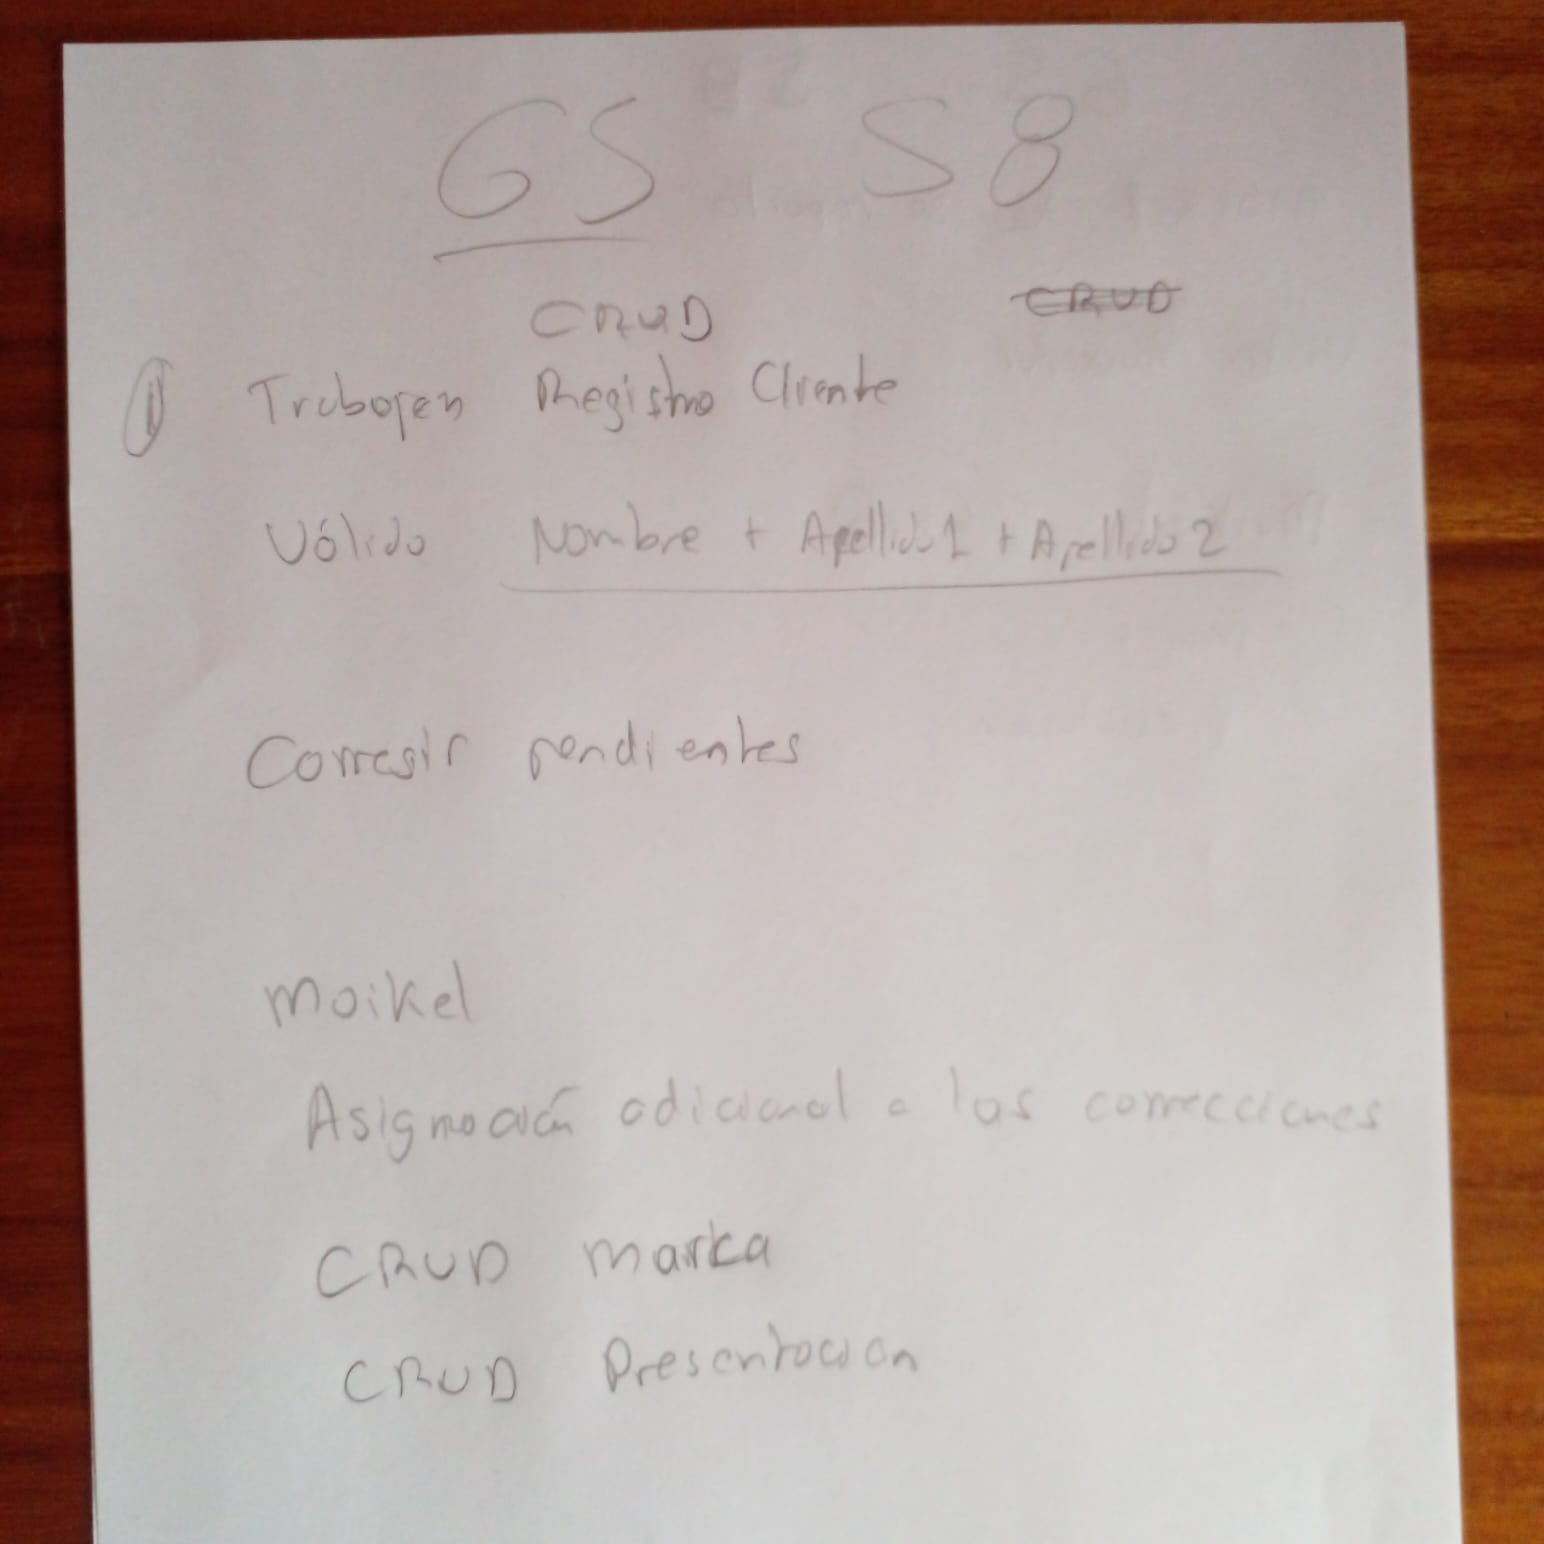 GS S8
CRUD CRUD
1 Trabajen Registro Cliente
Válido Nombre + Apellido 1 + Apellido 2
Corregir pendientes
Maikel
Asignación adicional a las correcciones
CRUD marka
CRUD Presentacion